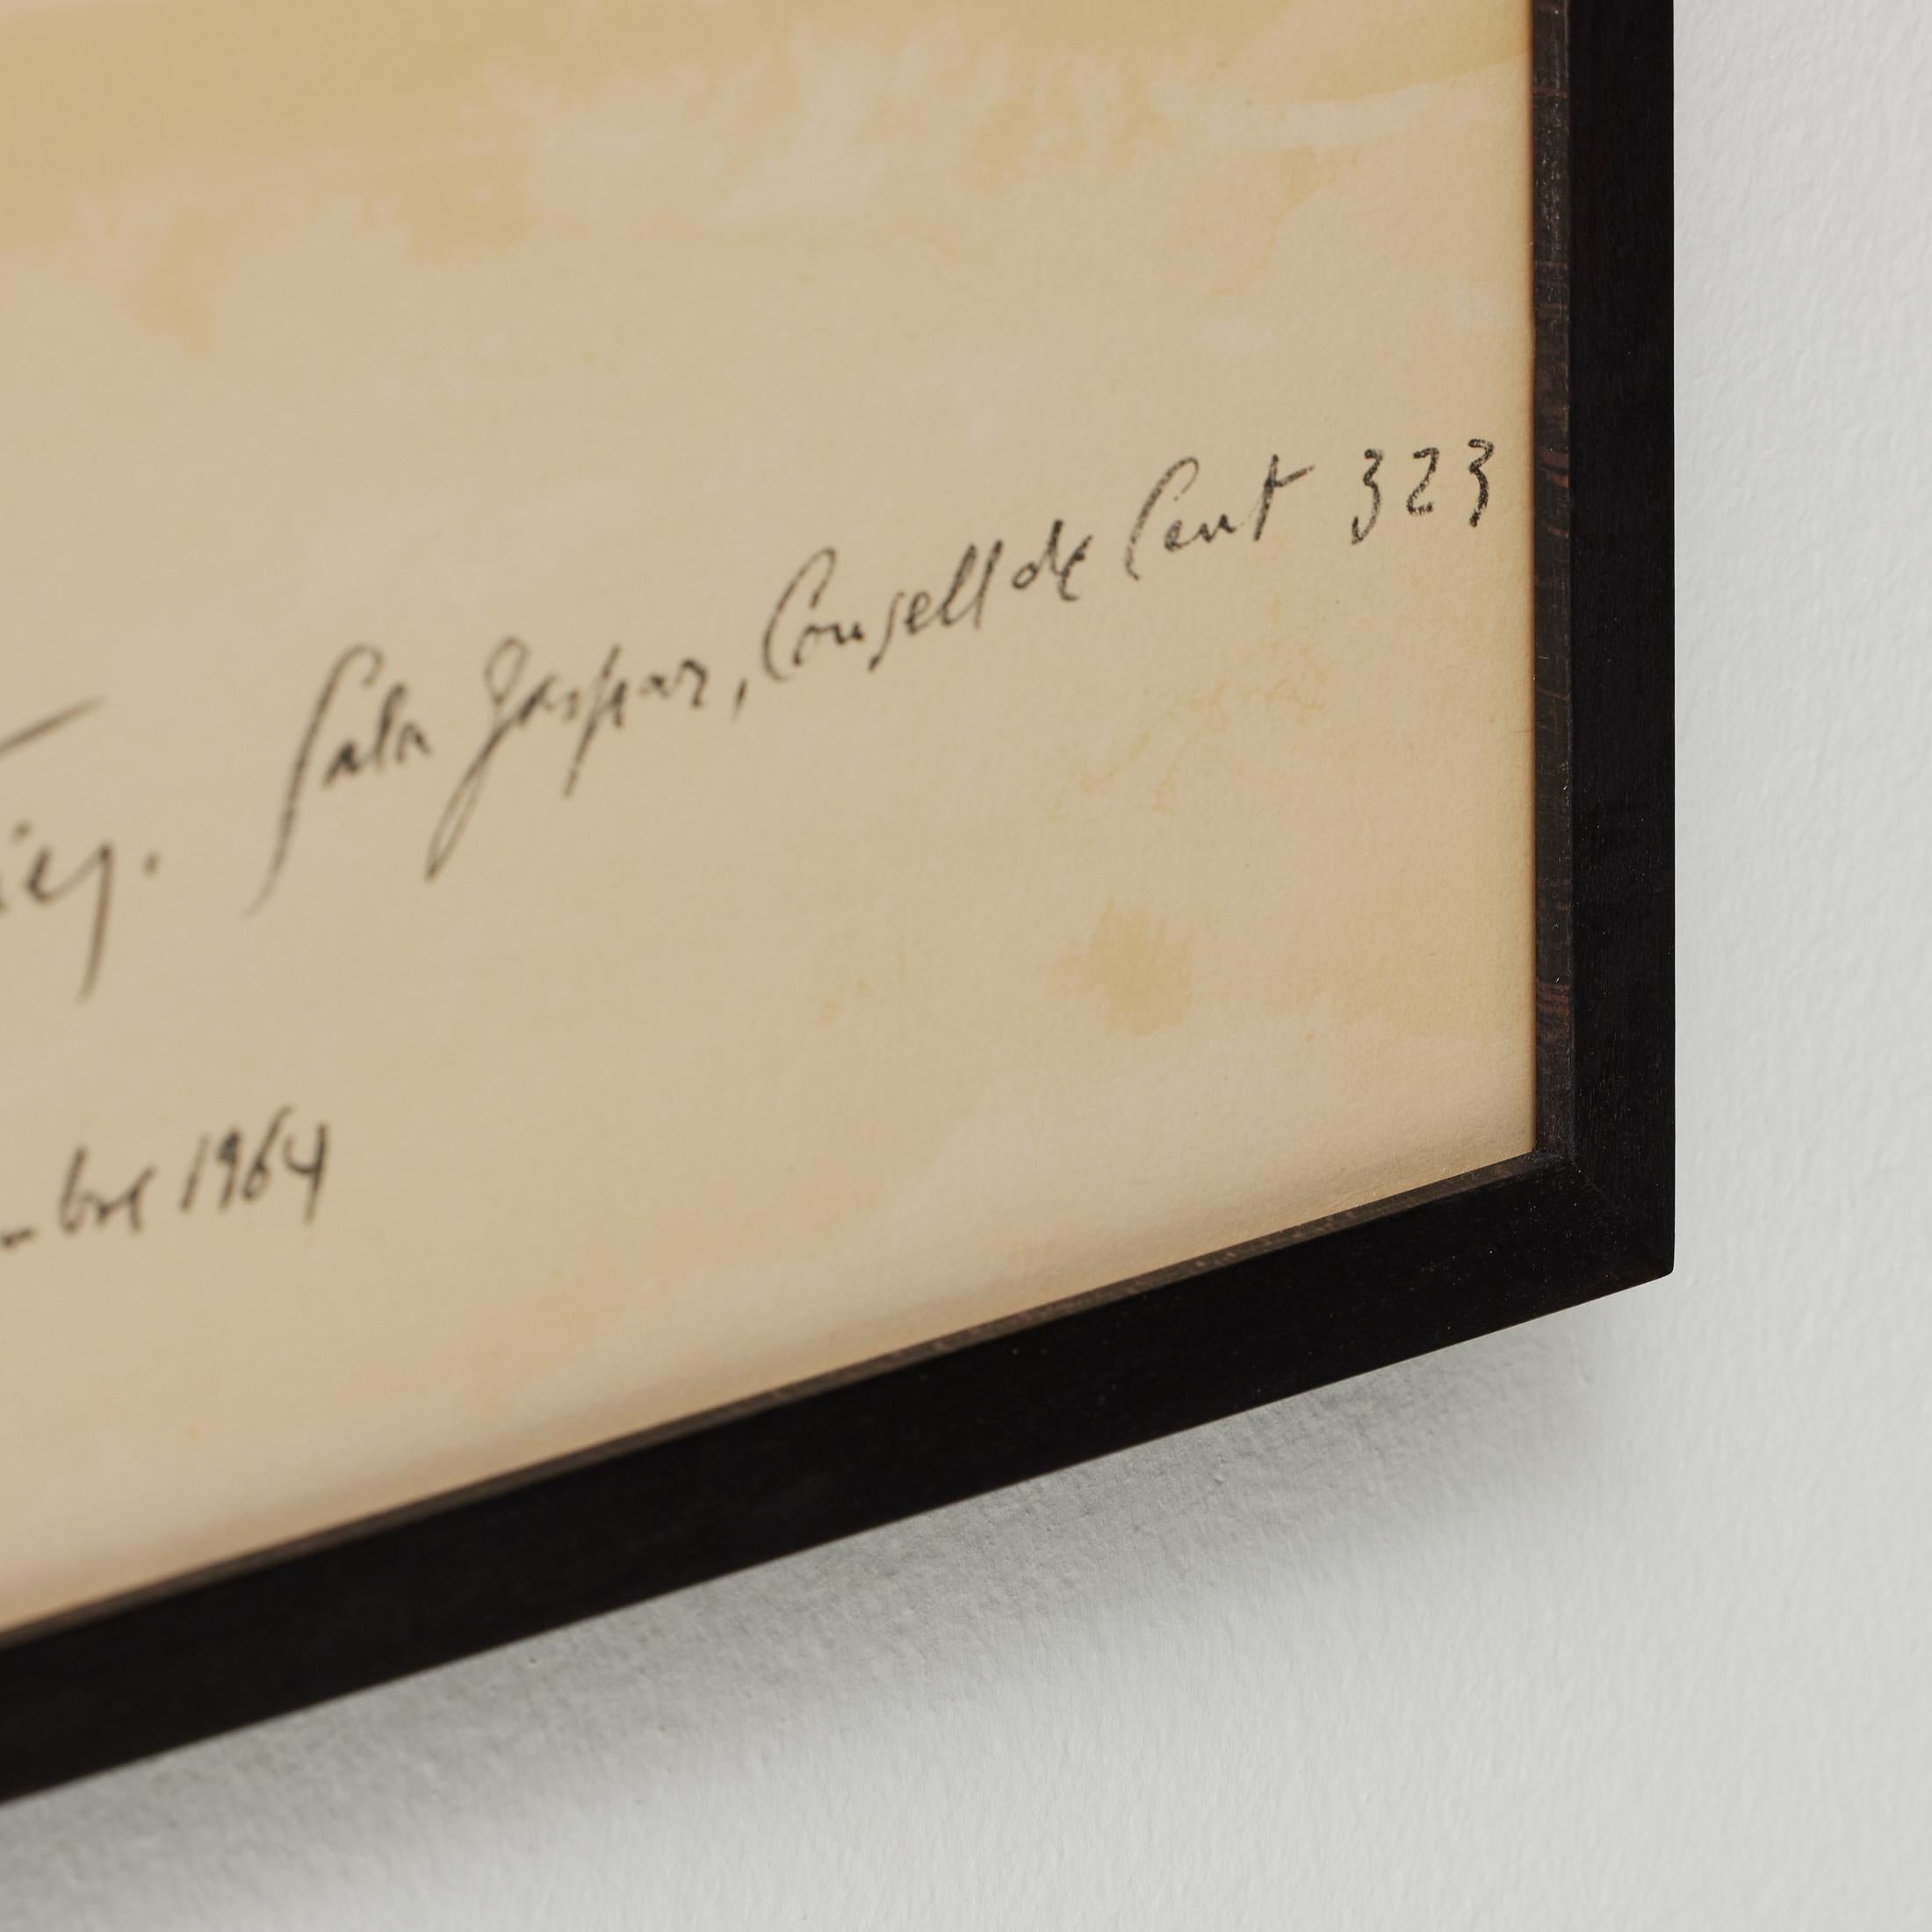 Sala Gaspar, Consell de Cent 323
1964